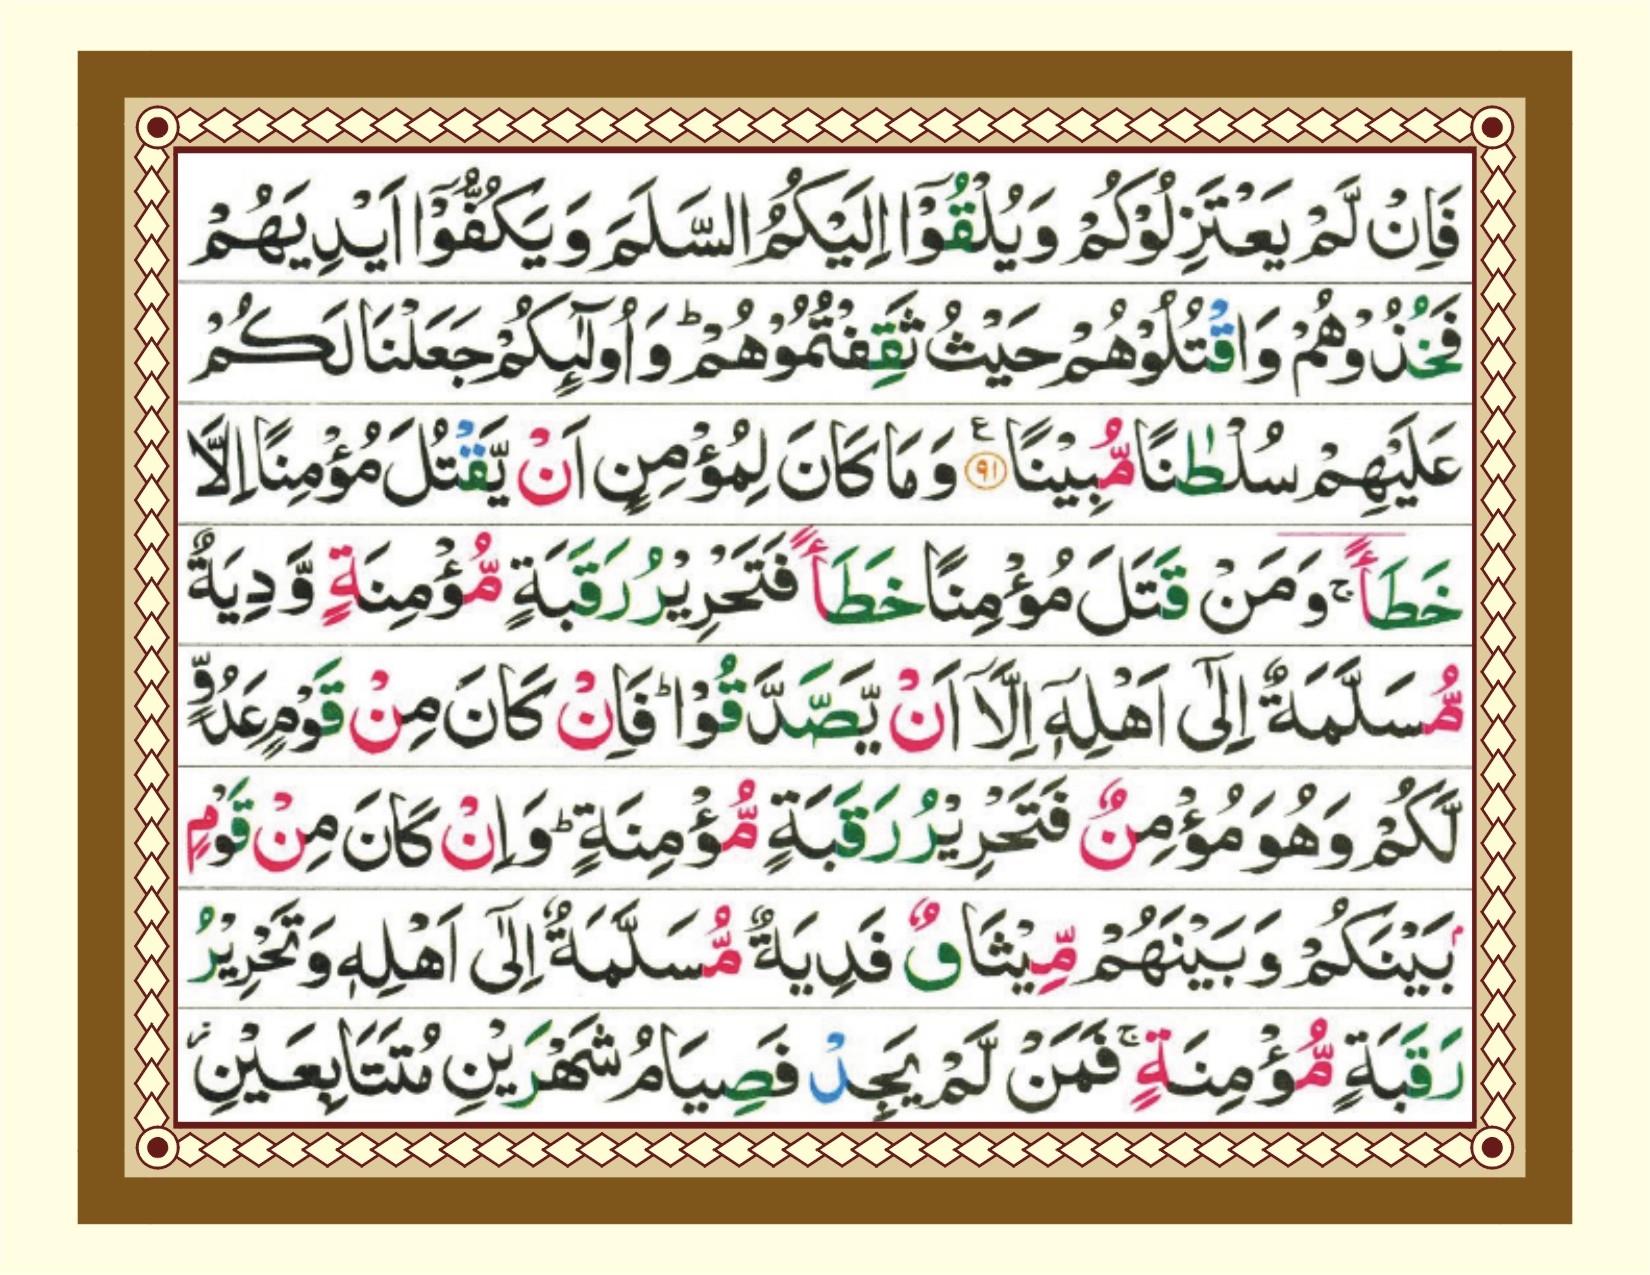 فَاِنْ لَّمْ يَعْتَزِلُوْكُمْ وَيُلْقُوْٓا اِلَيْكُمُ السَّلَمَ وَيَكُفُّوْٓا اَيْدِيَهُمْ
فَخُذُوْهُمْ وَاقْتُلُوْهُمْ حَيْثُ ثَقِفْتُمُوْهُمْ ؕ وَاُولٰٓئِكُمْ جَعَلْنَا لَكُمْ
عَلَيْهِمْ سُلْطٰنًا مُّبِيْنًا ع ﴿۹۱﴾ وَمَا كَانَ لِمُؤْمِنٍ اَنْ يَّقْتُلَ مُؤْمِنًا اِلَّا
خَطَأً ۚ وَمَنْ قَتَلَ مُؤْمِنًا خَطَأً فَتَحْرِيْرُ رَقَبَةٍ مُّؤْمِنَةٍ وَّدِيَةٌ
مُّسَلَّمَةٌ اِلٰٓى اَهْلِهٖٓ اِلَّآ اَنْ يَّصَّدَّقُوْا ؕ فَاِنْ كَانَ مِنْ قَوْمٍ عَدُوٍّ
لَّكُمْ وَهُوَ مُؤْمِنٌ فَتَحْرِيْرُ رَقَبَةٍ مُّؤْمِنَةٍ ؕ وَاِنْ كَانَ مِنْ قَوْمٍۭ
بَيْنَكُمْ وَبَيْنَهُمْ مِّيْثَاقٌ فَدِيَةٌ مُّسَلَّمَةٌ اِلٰٓى اَهْلِهٖ وَتَحْرِيْرُ
رَقَبَةٍ مُّؤْمِنَةٍ ۚ فَمَنْ لَّمْ يَجِدْ فَصِيَامُ شَهْرَيْنِ مُتَتَابِعَيْنِ ؗ